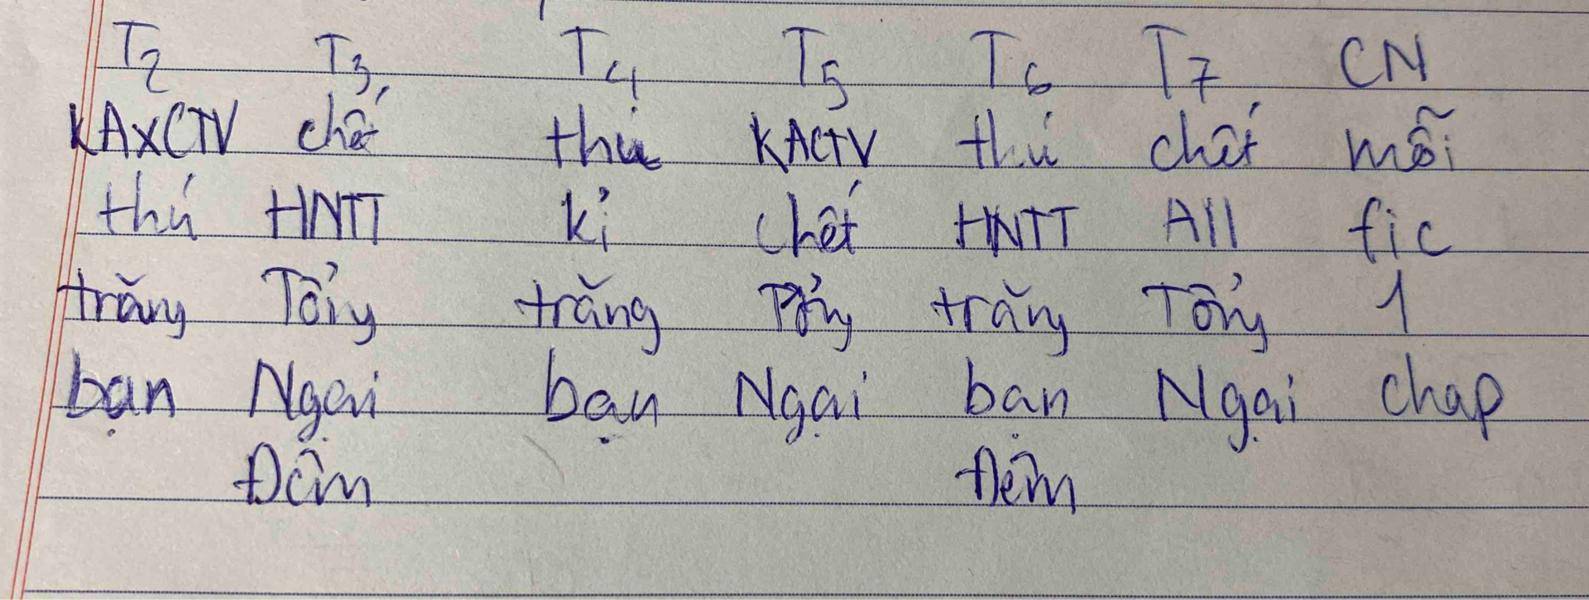 T2 T3 T4 T5 T6 T7 CN
KAXCTV chết thú KACTV thú chết mỗi
thú HNTT kỉ chết HNTT All fic
trăng Tổng trăng Tổng trăng Tổng 1
bạn Ngại bạn Ngại bạn Ngại chap
Đêm Đêm